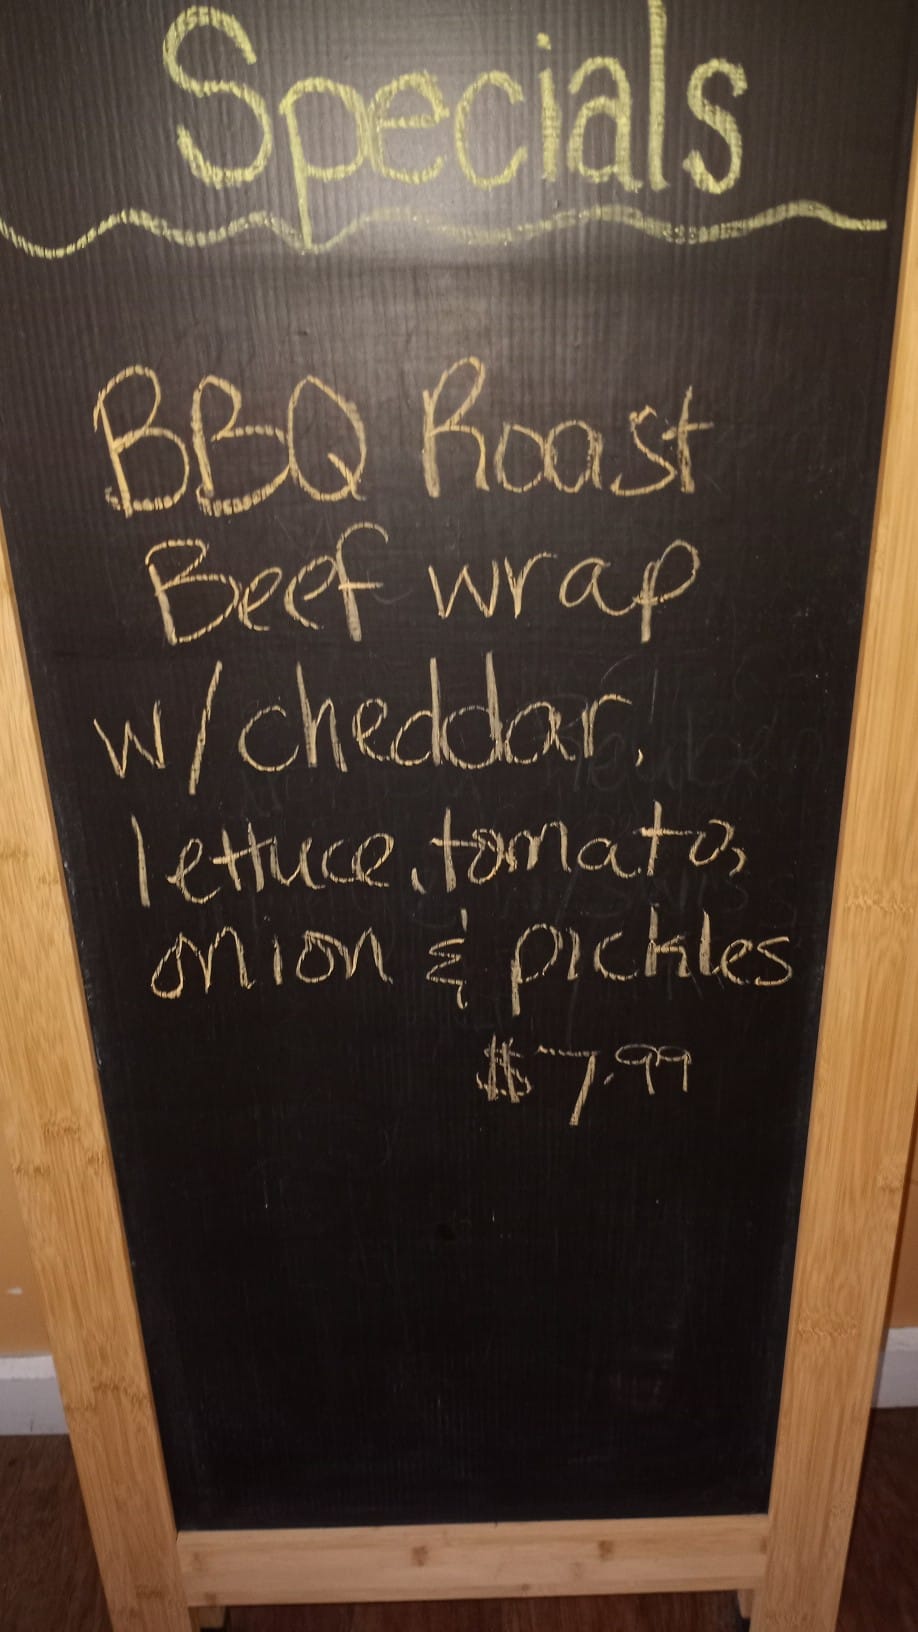 Specials
BBQ Roast
Beef wrap
w/cheddar,
lettuce, tomato,
onion & pickles
$7.99